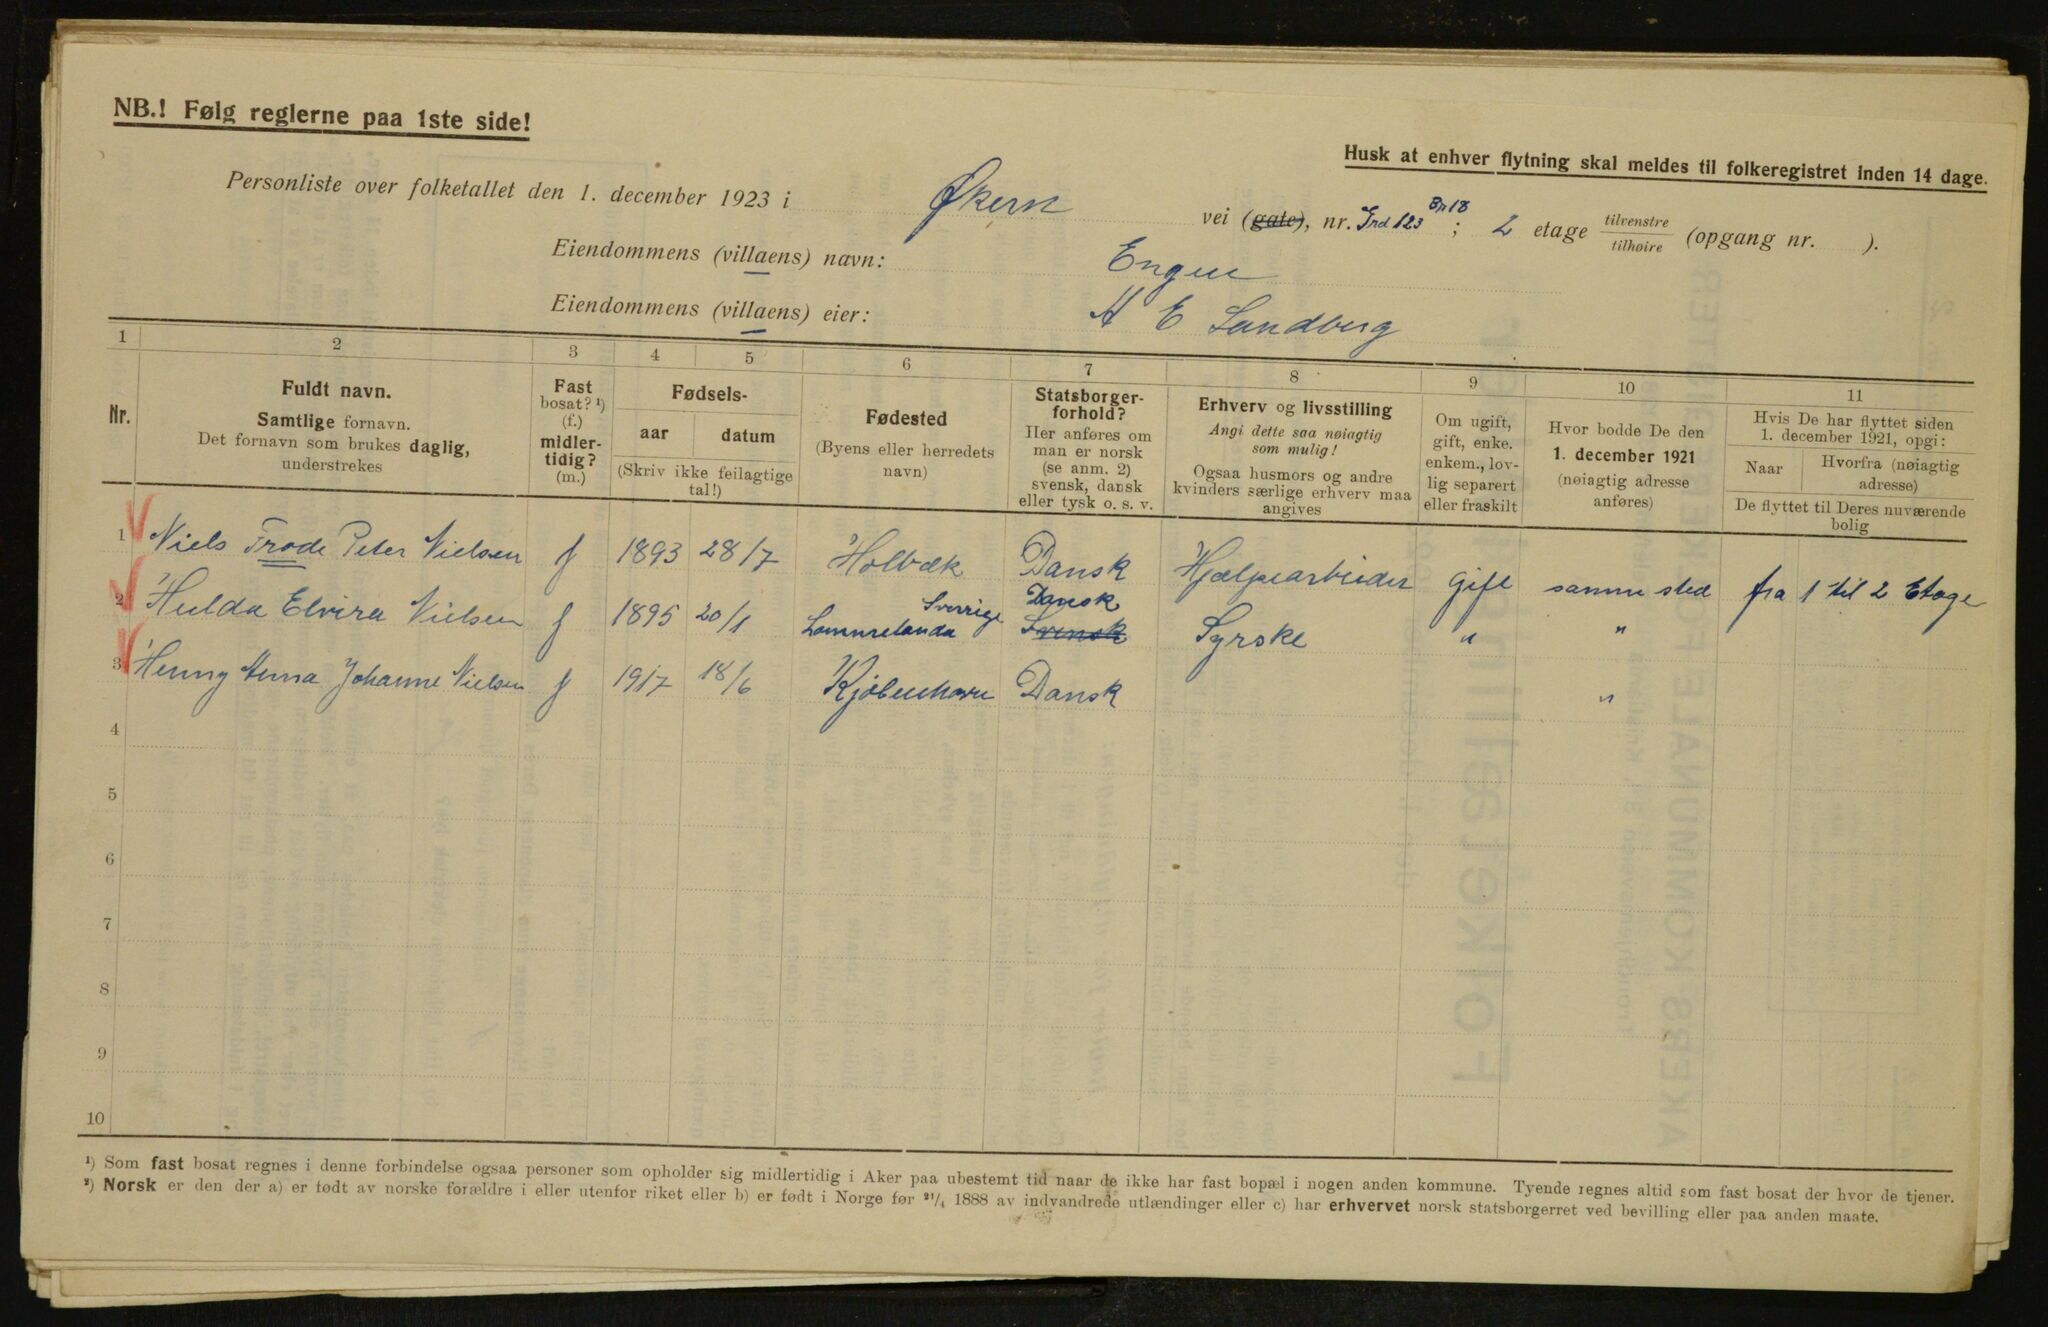 NB.! Følg reglerne paa 1ste side!
Husk at enhver flytning skal meldes til folkeregistret inden 14 dage.
Personliste over folketallet den 1. december 1923 i Økern vei (gate), nr. Grd 123 Br 18; 2 etage tilvenstre tilhøire (opgang nr. ).
Eiendommens (villaens) navn: Engen
Eiendommens (villaens) eier: A E Sandberg
1 2 3 4 5 6 7 8 9 10 11
Nr.
Fuldt navn.
Samtlige fornavn.
Det fornavn som brukes daglig,
understrekes
Fast
bosat? ¹)
(f.)
midler-
tidig?
(m.)
Fødsels-
aar datum
(Skriv ikke feilagtige
tal!)
Fødested
(Byens eller herredets
navn)
Statsborger-
forhold?
Her anføres om
man er norsk
(se anm. 2)
svensk, dansk
eller tysk o. s. v.
Erhverv og livsstilling
Angi dette saa nøiagtig
som mulig!
Ogsaa husmors og andre
kvinders særlige erhverv maa
angives
Om ugift,
gift, enke.
enkem., lov-
lig separert
eller fraskilt
Hvor bodde De den
1. december 1921
(nøiagtig adresse
anføres)
Hvis De har flyttet siden
1. december 1921, opgi:
Naar
Hvorfra (nøiagtig
adresse)
De flyttet til Deres nuværende
bolig
1 Niels Frode Peter Nielsen f 1893 28/7 Holbæk Dansk Hjælpearbeider Gift samme sted fra 1 til 2 Etage
2 Hulda Elvira Nielsen f 1895 20/1 Sverrige Dansk
Svensk Syrske " "
3 Henny Anna Johanne Nielsen f 1917 18/6 Kjøbenhavn Dansk "
4
5
6
7
8
9
10
¹) Som fast bosat regnes i denne forbindelse ogsaa personer som opholder sig midlertidig i Aker paa ubestemt tid naar de ikke har fast bopæl i nogen anden kommune. Tyende regnes altid som fast bosat der hvor de tjener.
²) Norsk er den der a) er født av norske forældre i eller utenfor riket eller b) er født i Norge før ²¹/₄ 1888 av indvandrede utlændinger eller c) har erhvervet norsk statsborgerret ved bevilling eller paa anden maate.